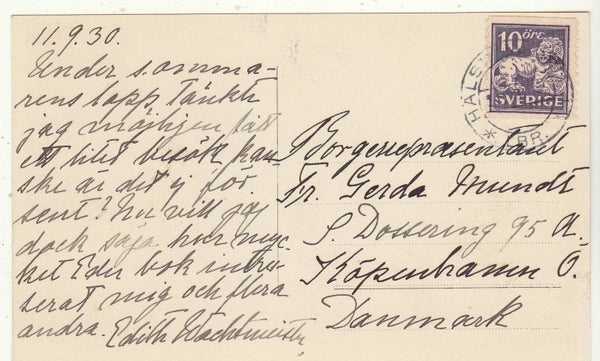 11.9.30.
Under somma-
rens lopp, tänkte
jag möjligen fått
ett litet besök kan-
ske är det ej för
sent? Nu vill jag
dock säja hur myc-
ket Eder bok intres-
serat mig och flera
andra. Edith Wachtmeister
10 ÖRE
SVERIGE
HÄLS
BR.
Borgerrepræsentant
Fr. Gerda Mundt
S. Dossering 95 A.
Köpenhamn Ö.
Danmark